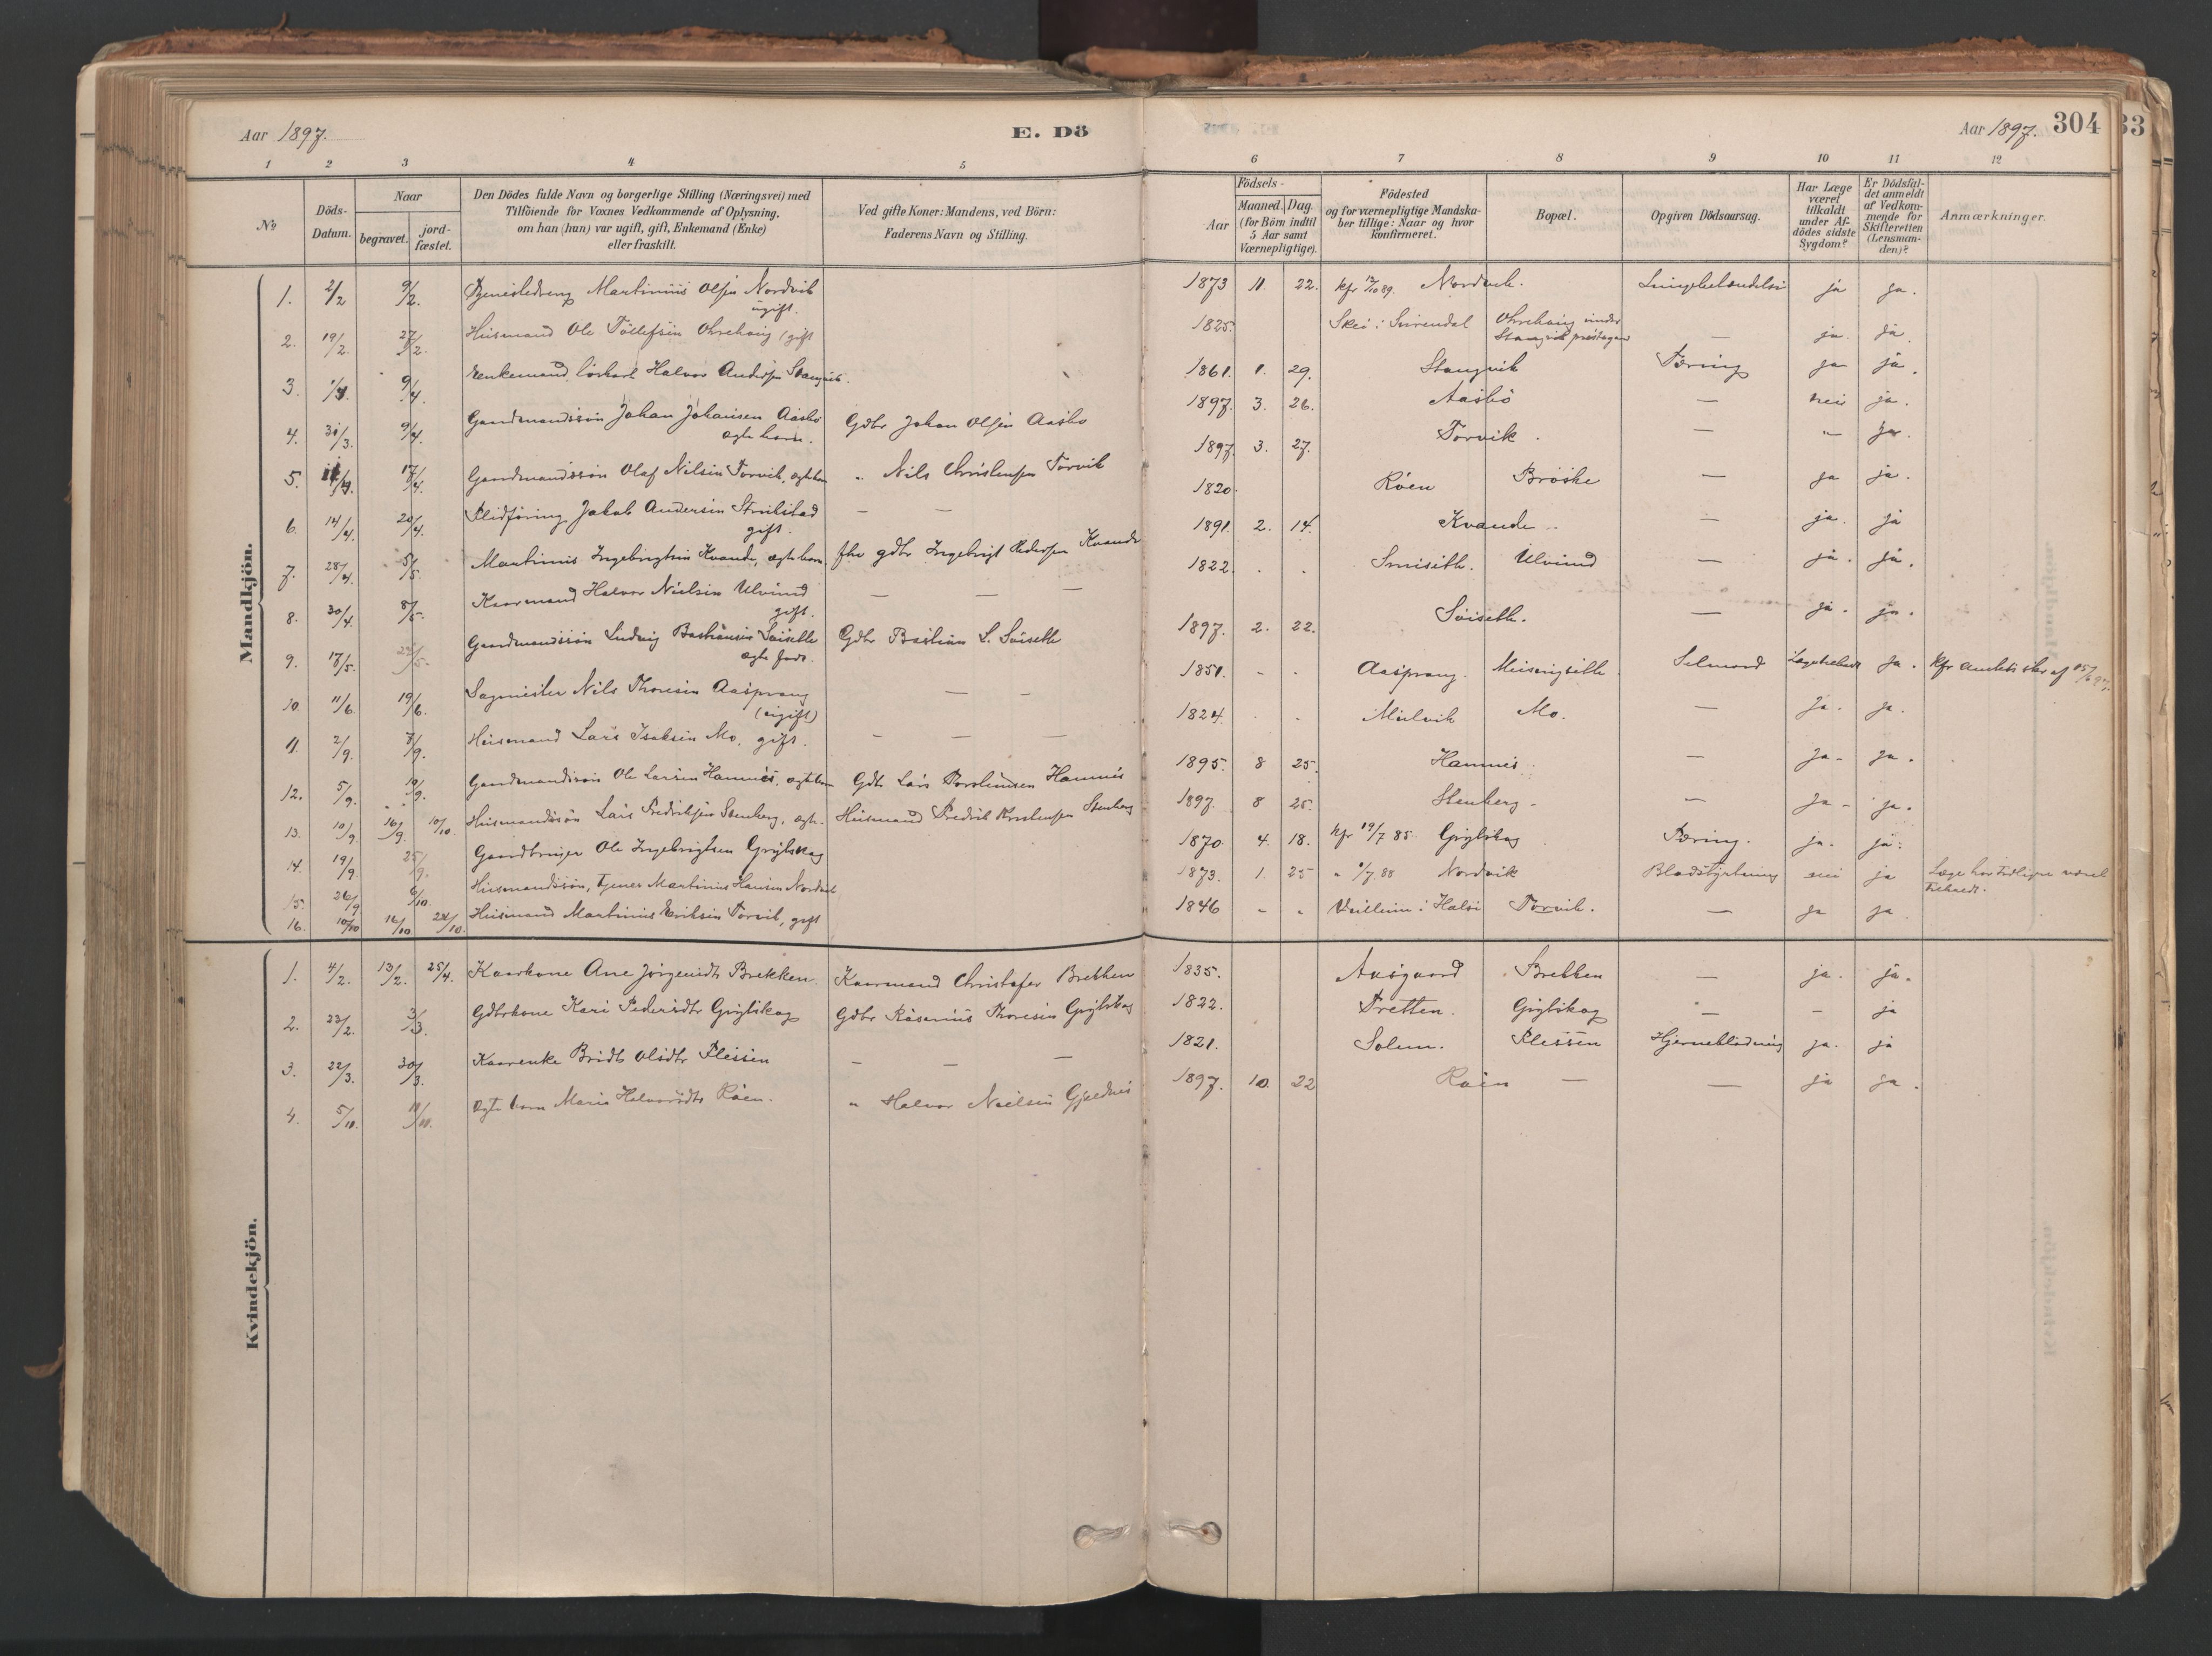 Aar 1897. E. Dö
Aar 1897. 304
33
1 2 3 4 5 6 7 8 9 10 11 12
No.
Döds-Datum.
Naar
begravet.
jord-fæstet.
Den Dödes fulde Navn og borgerlige Stilling (Næringsvei) med
Tilföiende for Voxnes Vedkommende af Oplysning,
om han (hun) var ugift, gift, Enkemand (Enke)
eller fraskilt.
Ved gifte Koner: Mandens, ved Börn:
Faderens Navn og Stilling.
Födsels-
Aar
Maaned. Dag.
(for Börn indtil
5 Aar samt
Værnepligtige).
Födested
og for værnepligtige Mandska-
ber tillige: Naar og hvor
konfirmeret.
Bopæl.
Opgiven Dödsaarsag.
Har Læge
været
tilkaldt
under Af-
dödes sidste
Sygdom?
Er Dödsfal-
det anmeldt
af Vedkom-
mende for
Skifteretten
(Lensman-
den)?
Anmærkninger.
Mandkjön.
1. 2/2 9/2. Tjenestedreng Martinus Olsen Nordvik ugift. 1873 11. 22. kfr 13/10 89. Nordvik. Lungebetændelse ja ja.
2. 19/2. 27/2. Husmand Ole Tollefsen Ohrehaug (gift 1825. Skei i Surendal Ohrehaug under Stangvik præstegaard — ja. ja.
3. 9/4. Enkemand, löskarl Halvor Andersen Stangvik. 1861. 1. 29. Stangvik Tæring ja ja.
4. 31/3. 9/4. Gaardmandssön Johan Johansen Aasbö ægte barn. Gdbr Johan Olsen Aasbö 1897. 3. 26. Aasbö — nei ja.
5. 17/4. Gaardmandssön Olaf Nilsen Torvik, ægte barn " Nils Christensen Torvik 1897. 3. 27. Torvik. — " ja.
6. 14/4. 20/4. Flidföring Jakob Andersen gift. — — 1820. Röen Bröske — ja ja.
7. 28/4. 5/5. Martinus Ingebrigtsen Kvande, ægte barn. fhv gdbr Ingebrigt Pedersen Kvande 1891. 2. 14. Kvande — ja. ja
8. 30/4. 8/5. Kaarmand Halvor Nielsen Ulvund gift. — — — 1822. . . Smiseth. Ulvund — ja. ja.
9. 18/5. Gaardmandssön Ludvig Bastiansen Söiseth ægte födt. Gdbr Bastian L. Söiseth 1897. 2. 22. Söiseth. — ja. ja.
10. 11/6. 19/6. Sagmester Nils Thoresen Aasprang (ugift) — — 1851. - - Aasprang. Meisingseth Selmord Lægetilkaldt ja. kfr amtets skr af 15/6 97.
11. 2/9. 7/9. Husmand Lars Isaksen Mo. gift. — — — 1824. . . Mulvik Mo. — ja. ja.
12. 5/9. 10/9. Gaardmandssön Ole Larsen Hamnes, ægte barn Gdbr Lars Torstensen Hamnes 1895. 8 25. Hamnes — ja. ja.
13. 10/9. 16/9. 10/10. Husmandssön Lars Fredriksen Stenberg, ægte. Husmand Fredrik Kristensen Stenberg 1897. 8 25. Stenberg. — ja. ja.
14. 19/9. 25/9. Gaardbruger Ole Ingebrigtsen Grytskog 1870. 4. 18. kfr 19/7 85 Grytskog Tæring. ja. ja.
15. 26/9 6/10. Husmandssön, Tjener Martinus Hansen Nordvik 1873. 1. 25 " 8/7 88 Nordvik Blodstyrtning nei ja Læge har tidligere været tilkaldt.
16. 10/10 16/10 24/10. Husmand Martinus Eriksen Torvik, gift 1846 - - i Halsa Torvik. — ja ja.
Kvindekjön.
1. 4/2. 13/2. 25/4. Kaarkone Ane Jörgensdt Brekken. Kaarmand Christofer Brekken 1835. Aasgaard Brekken — ja. ja.
2. 23/2. 3/3. Gdbrkone Kari Pedersdtr Grytskog Gdbr Rasmus Thoresen Grytskog 1822. Tretten. Grytskog — — ja
3. 22/3. 30/3. Kaarenke Bridt Olsdtr Flessen — — — 1821. Solem. Flessen Hjerneblödning ja. ja
4. 5/10. Ægte barn Marie Halvorsdtr Röen. " Halvor Nielsen Gjeldnes 1897. 10. 22 Röen — — ja ja.